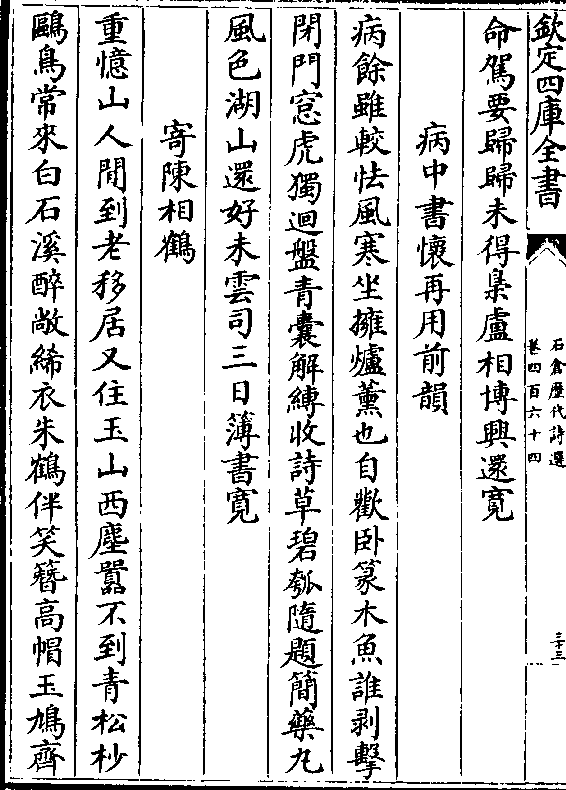 欽定四庫全書
石倉歷代詩選
卷四百六十四
三十三
命駕要歸歸未得梟盧相博興還寬
病中書懷再用前韻
病餘雖較怯風寒坐擁爐薰也自歡卧篆木魚誰剥擊
閉門窓虎獨迴盤青囊解縛收詩草碧瓠隨題簡藥丸
風色湖山還好未雲司三日簿書寛
寄陳相鶴
重憶山人間到老移居又住玉山西塵嚻不到青松杪
鷗鳥常來白石溪醉敞絺衣朱鶴伴笑簪高帽玉鳩齊